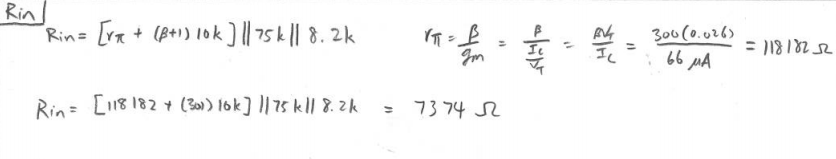 Rin
Rin = [rπ + (β+1) 10k] || 75k || 8.2k rπ = β/gm = β/(Ic/VT) = βVT/Ic = 300(0.026)/66 μA = 118182 Ω
Rin = [118182 + (301) 10k] || 75k || 8.2k = 7374 Ω